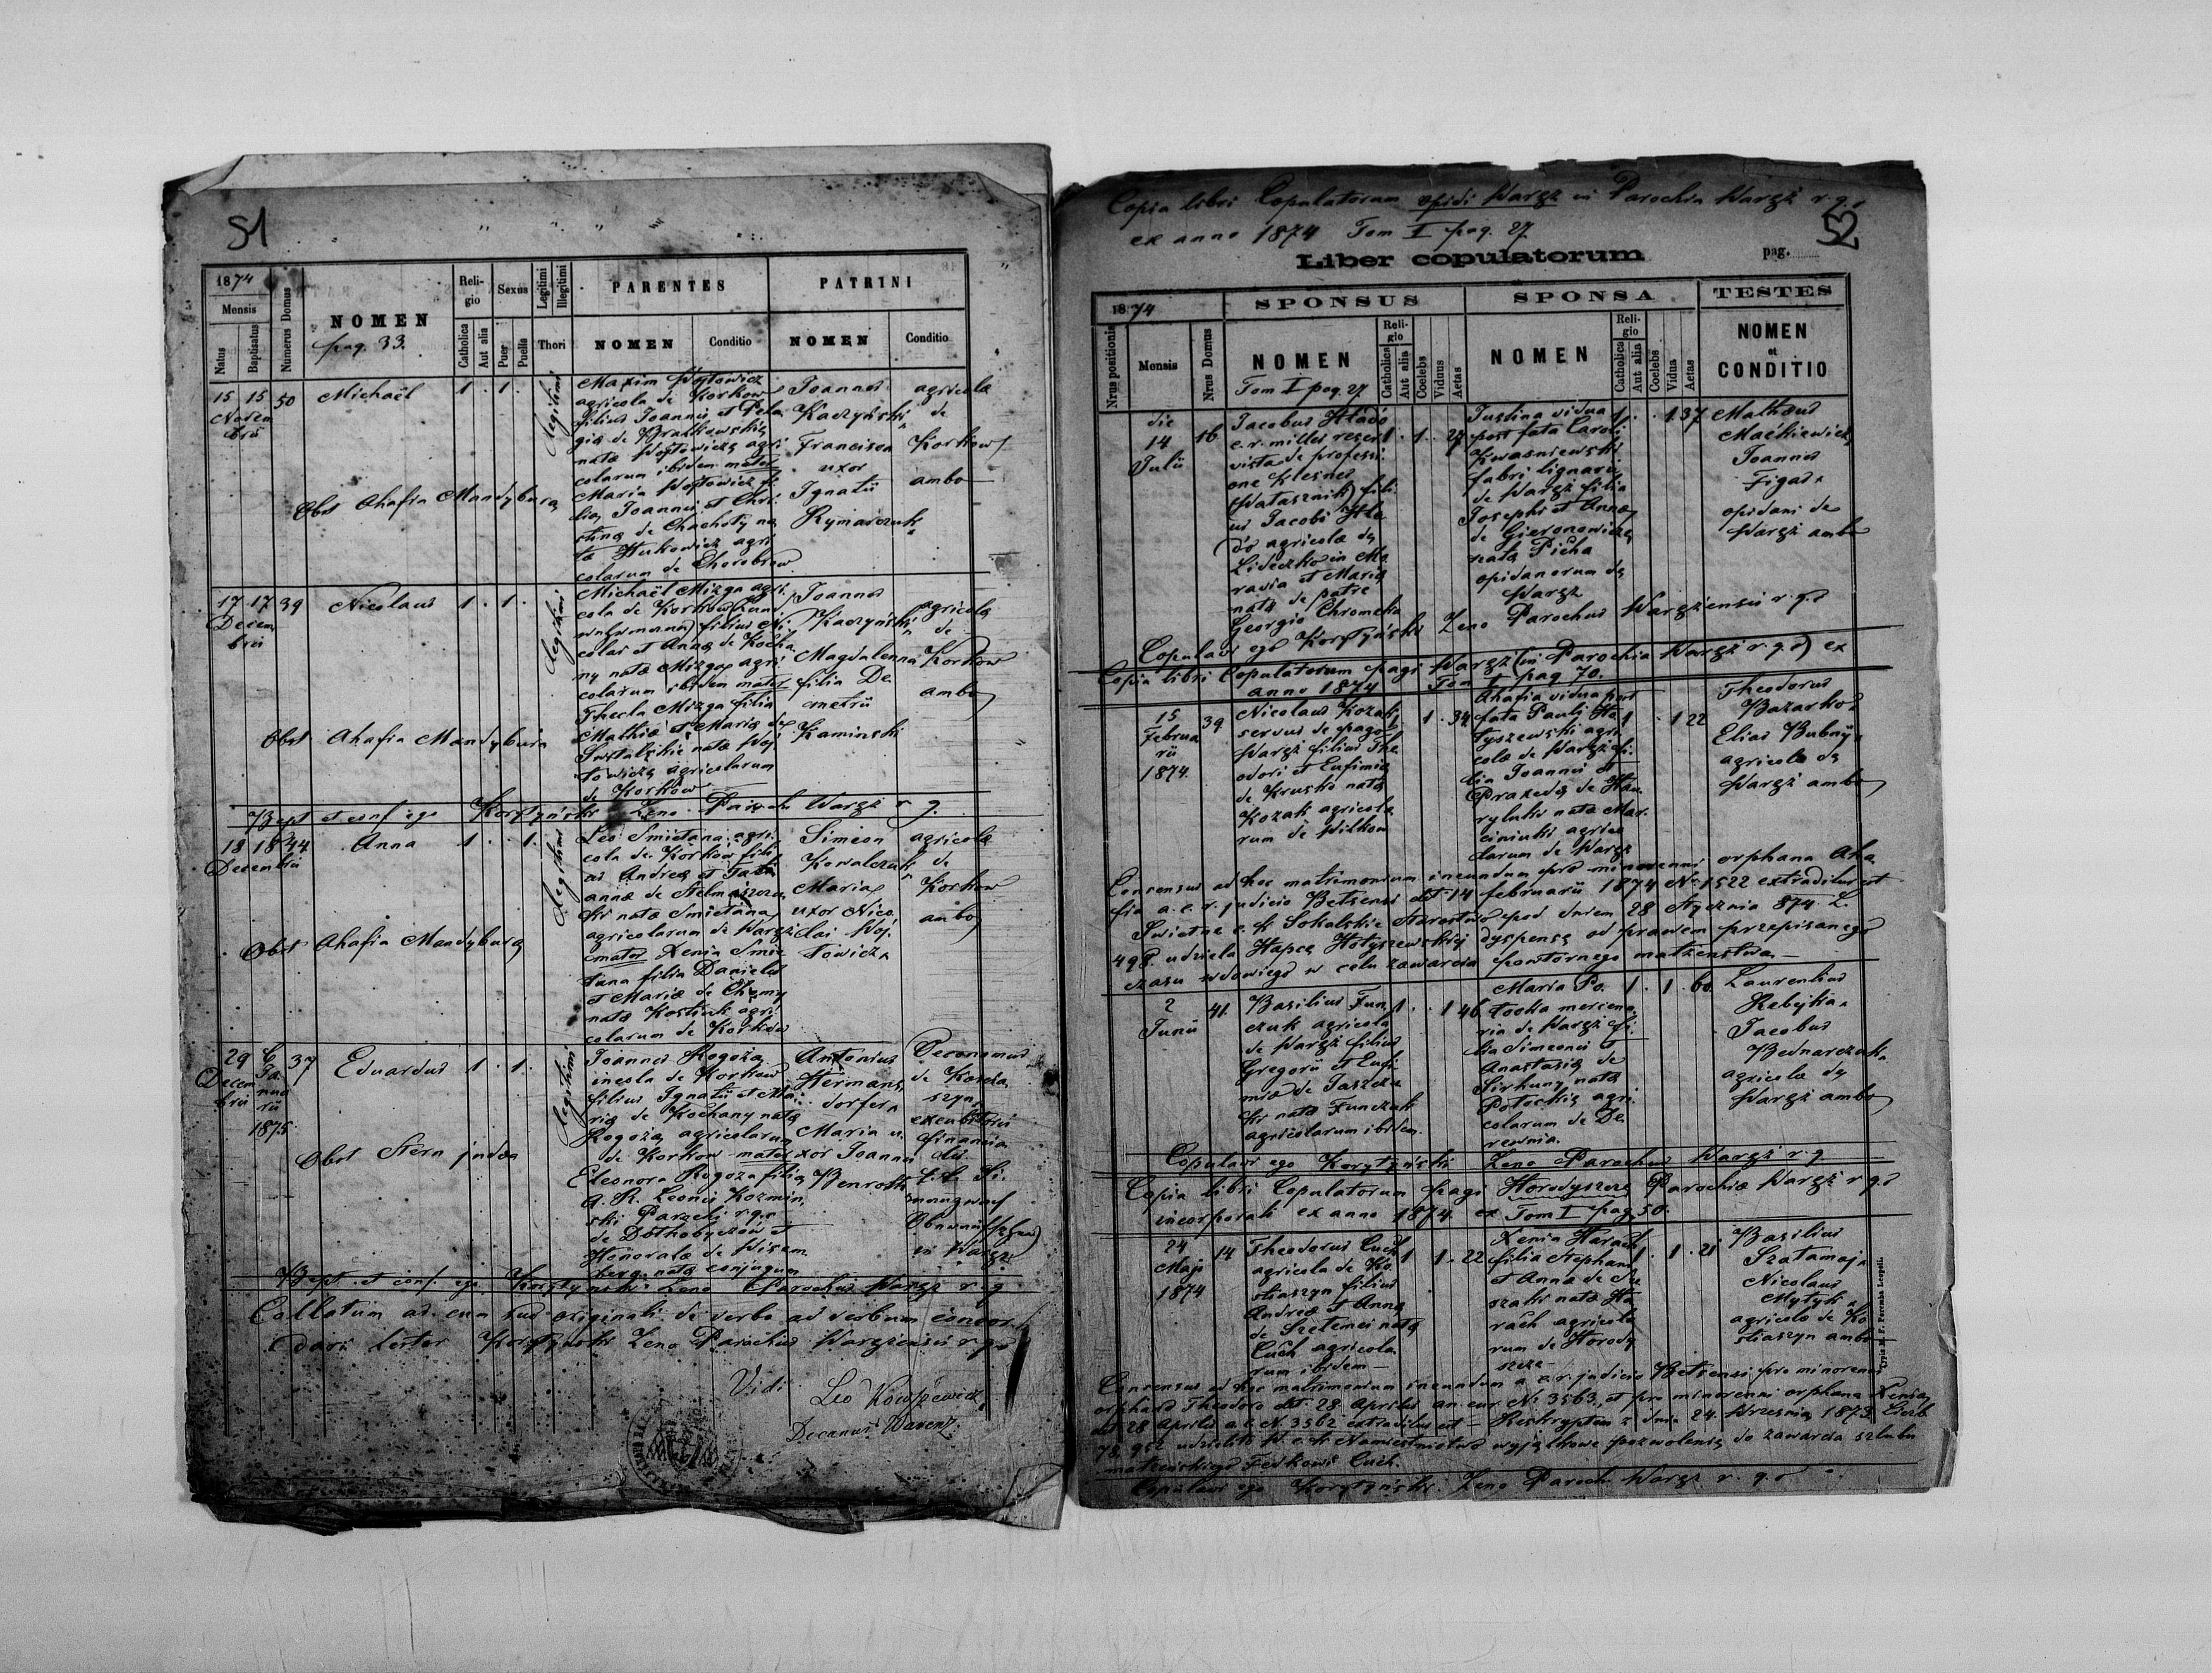 51
1874
Mensis
Natus
Baptisatus
Numerus Domus
NOMEN
pag. 33.
Reli-
gio
Catholica
Aut alia
Sexus
Puer
Puella
Legitimi
Illegitimi
Thori
PARENTES
NOMEN
Conditio
PATRINI
NOMEN
Conditio
15 15 50 Michaël 1 . 1 .
Novem
bris
legitimi
Maxim Wojtowicz
agricola de Korkow
filius Joannis et Pela
gia de
nata Wojtowicz agri
colarum ibidem mater
Maria Wojtowicz fi
lia Joannis et Chri
stina de
ta agri
colarum de Chorobrow
Joannes
Kaczyński
Francisca
uxor
Ignatii
Rymarczuk
agricola
de
Korkow
ambo
Obst Ahafia Mandybura
17 17 39 Nicolaus 1 . 1 .
Decem
bris
legitimi
Michaël Mizga agri
cola de Korkow
filius Ni
colai et Anna de Kocha
ny nata Mizga agri
colarum ibidem mater
Thecla Mizga filia
Mathiae et Maria de
nata Woj
towicz agricolarum
de Korkow
Joannes
Kaczyński
Magdalena
filia De
metrii
Kaminski
agricola
de
Korkow
ambo
Obst Ahafia Mandybura
Bapt et conf ego Korytyński Zeno Paroch Waręż r. g.
18 18 44 Anna 1 . . 1.
Decembris
legitimi
Leo Smietana agri
cola de Korkow fili
us Andrea et Tati
anna de
ki nata Smietana
agricolarum de Waręż
mater Xenia Smie
tana filia Danielis
et Maria de
nata Kostiuk agri
colarum de Korkow
Simeon
Kowalczuk
Maria
uxor Nico
lai Woj
towicz
agricola
de
Korkow
ambo
Obst Ahafia Mandybura
29 6 37 Eduardus 1 . 1 .
Decem
bris
Ja
nua
rii
1875.
legitimi
Joannes Rogoża
incola de Korkow
filius Ignatii et Ma
ria de Kochany nata
Rogoża agricolarum
de Korkow mater
Eleonora Rogoża filia
A. R. Leonis Kozmin
ski Parochi r. g.
de Dołhobyczów et
Honorata de
berg nata conjugum
Antonius
Hermans
dorfer
Maria u
xor Joannis
Benroth
Oeconomus
de
szyn
financia
in Waręż
Obst Stern judaea
Bapt. et conf. ego Korytyński Zeno Parochus Waręż r. g.
Collatum ac cum suo originali de verbo ad verbum concor
dare testor Korytyński Zeno Parochus Warężensis r. g.
Vidi
Leo
Decanus Waręż.
Copia libri Copulatorum opidi Waręż in Parochia Waręż r. g.
ex anno 1874 Tom I pag. 27
52
Liber copulatorum
pag.
1874
Nrus positionis
Mensis
Nrus Domus
SPONSUS
NOMEN
Tom I pag. 27
Reli-
gio
Catholica
Aut alia
Coelebs
Viduus
Aetas
SPONSA
NOMEN
Reli-
gio
Catholica
Aut alia
Coelebs
Vidua
Aetas
TESTES
NOMEN
et
CONDITIO
die
14
Julii
16
Jacobus
c. r. miles reser
vista de professi
one Klesner
fili
us Jacobi
agricola de
Lideczko in Mo
ravia et Maria
nata de patre
Georgio Chromcka
1 . 1 . 27
Justina vidua
post fata Caroli
Kwasniewski
fabri lignarii
de Waręż filia
Josephi et Anna
de Gieronowicz
nata Picha
opidanorum de
Waręż
1 . . 1 37
Mathaeus
Mackiewicz
Joannes
Figas
opidani de
Waręż ambo
Copulavi ego Korytyński Zeno Parochus Warężensis r. g.
Copia libri Copulatorum pagi Waręż (in Parochia Waręż r. g.) ex
anno 1874 Tom I pag 70.
15
Februa
rii
1874.
39
Nicolaus Kozak
servus de pago
Waręż filius The
odori et Eufimia
de Krusko nata
Kozak agricola
rum de Wilkow
1 . 1 . 34
Ahafia vidua post
fata Pauli Ho
tyszewski agri
cola de Waręż fi
lia Joannis et
Praxeda de Hau
ryluk nata Mar
ciniuk agrico
larum de Waręż
1 . . 1 22
Theodorus
Bazarko
Elias Bubnij
agricola de
Waręż ambo
Consensus ad hoc matrimonium ineundum pro minorenni orphana Aha
fia a. c. r. judicio Betsensi dto 14 februarii 1874 No 1522 extraditus est
Świetne c. k. Sokalskie Starostwo pod dniem 28 stycznia 874 L.
498. udziela Hapce Hotyszewskiej dyspensę od prawem przepisanego
czasu wdowiego w celu zawarcia powtórnego małżeństwa.—
2
Junii
41.
Basilius Fun
czuk agricola
de Waręż filius
Gregorii et Eufi
mia de
ki nata Funczuk
agricolarum ibidem.
1 . . 1 46
Maria Po
tocka mercena
ria de Waręż fi
lia Simeonis et
Anastasia de
nata
Potockia agri
colarum de De
rewnia.
1 . 1 . 60
Laurentius
Rabejka
Jacobus
Bednarczuk
agricola de
Waręż ambo
Copulavi ego Korytyński Zeno Parochus Waręż r. g.
Copia libri Copulatorum pagi Horodyszcze Parochiae Waręż r. g.
incorporati ex anno 1874. ex Tom I pag 50.
24
Maji
1874
14
Theodorus Cuch
agricola de Ko
tiaszyn filius
Andrea et Anna
de nata
Cuch agricola
rum ibidem —
1 1 . 22
Xenia Harach
filia Stephani
et Anna de
nata Ha
rach agricola
rum de Horody
szcze —
1 . 1 . 21
Basilius
Szatamaj
Nicolaus
Mytyk
agricola de Ko
tiaszyn ambo
Typis M. F. Poremba Leopoli.
Consensus ad hoc matrimonium ineundum a c. r. judicio Betsensi pro minorenni
orphano Theodoro dto. 28 Aprilis an. cur. No 3563, et pro minorenni orphana Xenia
dto 28 Aprilis a. c. N. 3562 extraditus est — Reskryptem z dnia 24. Września 1873 Liczb
78.952 udzieliło W. c. k. Namiestnictwo wyjątkowe pozwolenie do zawarcia szlubu
małżeńskiego Fedkowi Cuch.
Copulavi ego Korytyński Zeno Paroch. Waręż r. g.